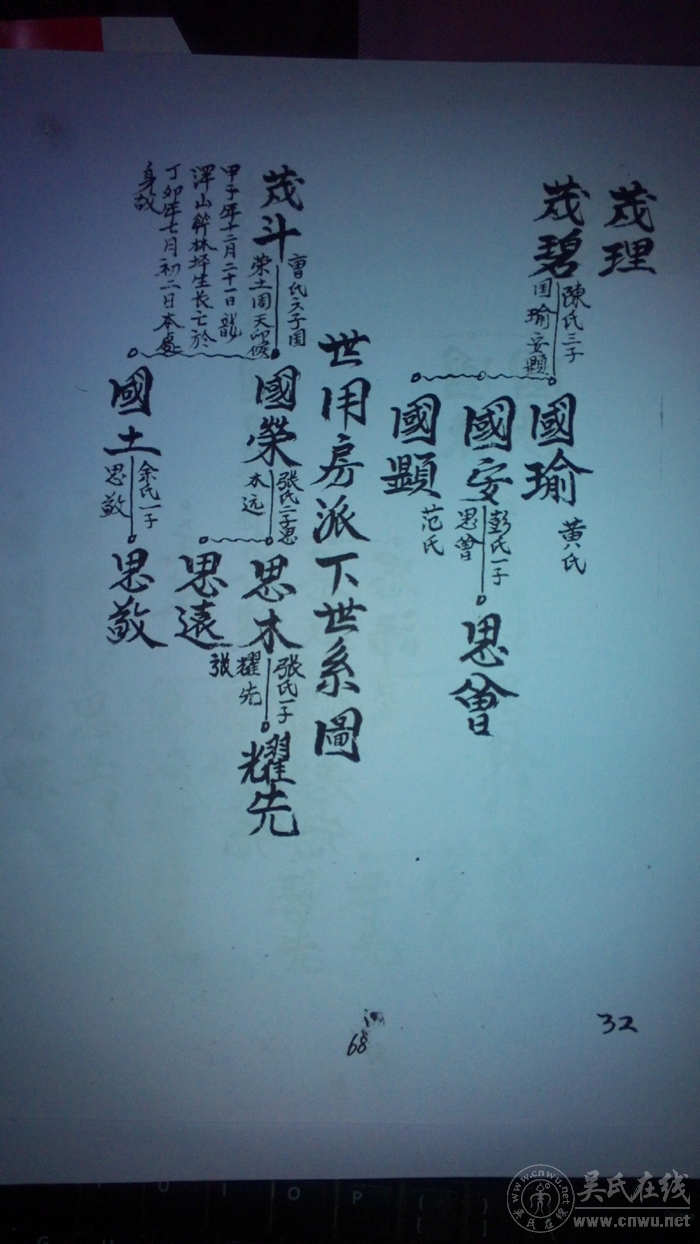 茂理
茂碧
陳氏三子
国瑜安顕
國瑜
黄氏
國安
彭氏一子
思曾
思曾
國顕
范氏
世用房派下世系圖
茂斗
曹氏二子国
荣土
甲子年十二月二十一日
坪生长亡於
丁卯年七月初二日本處
身故
國榮
张氏二子思
木远
思木
张氏一子
耀先
耀先
思遠
张
國土
余氏一子
思敬
思敬
32
68
吴氏在线
www.cnwu.net